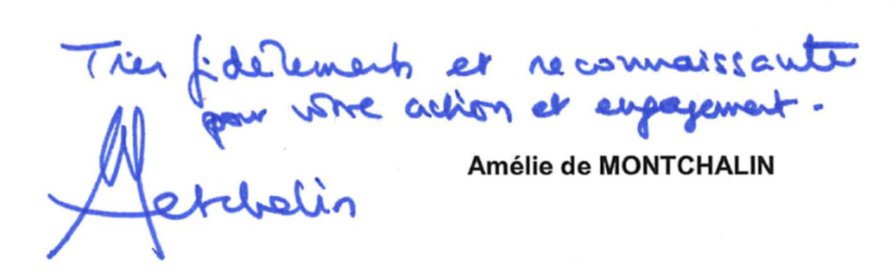 Très fidèlement et reconnaissante
pour votre action et engagement.
Amélie de MONTCHALIN